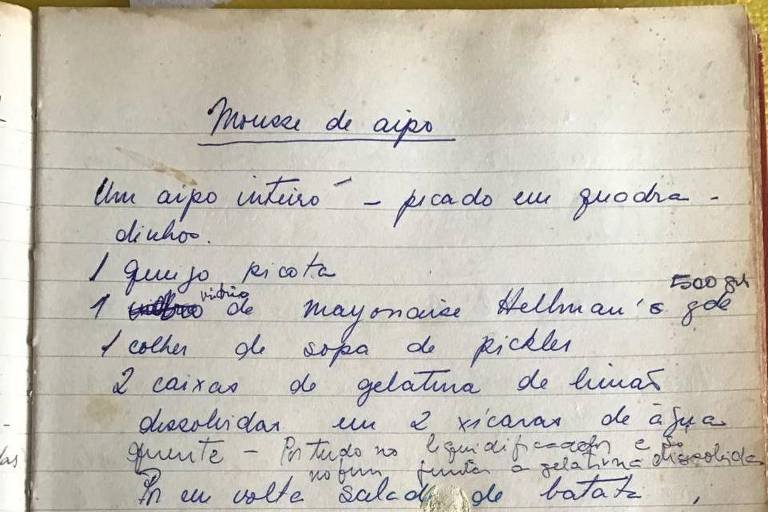 Mousse de aipo
Um aipo inteiro - picado em quadra-
dinhos.
1 queijo picota
500 gr
1 vidro de mayonaise Hellman's gde
1 colher de sopa de pickles
2 caixas de gelatina de limão
dissolvidas em 2 xícaras de água
quente - Por tudo no liquidificador e só
no fim juntar a gelatina dissolvida
Por em volta salada de batata,
das